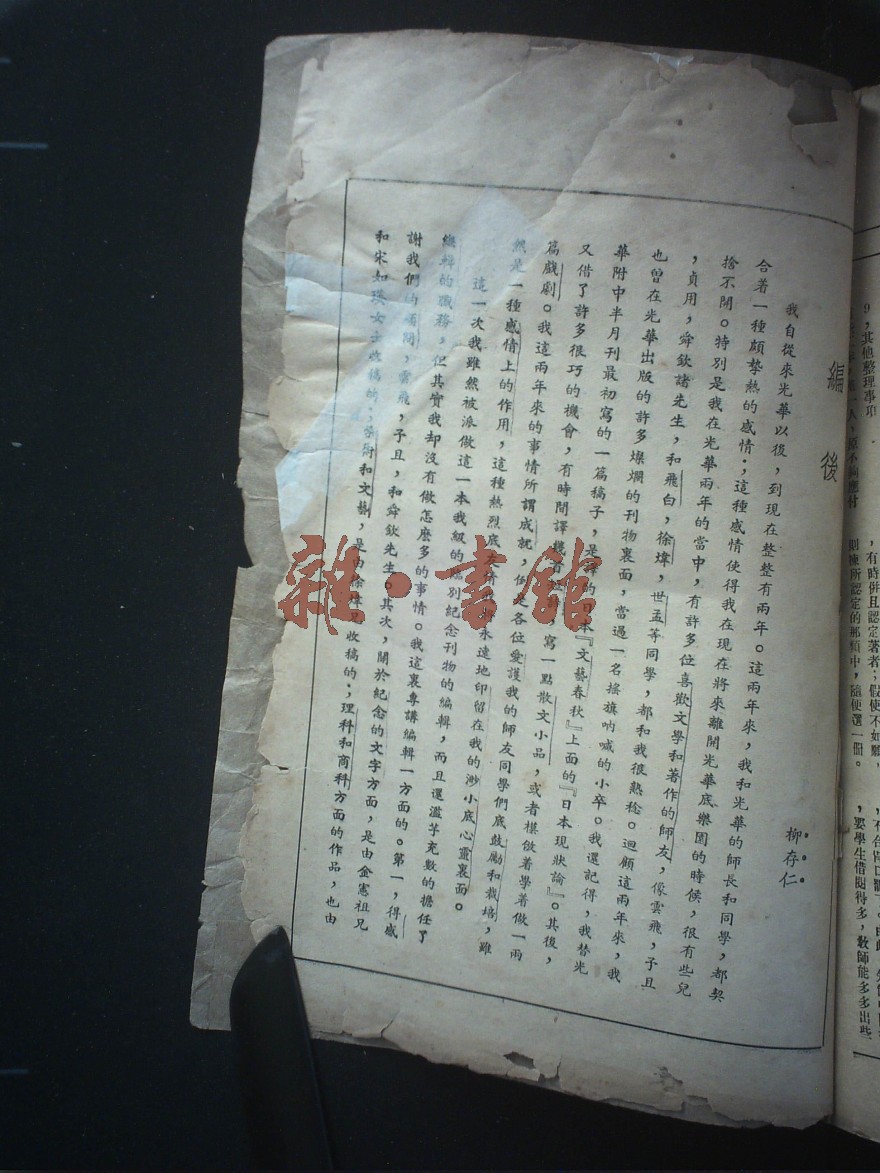 編後
柳存仁
我自從來光華以後，到現在整整有兩年。這兩年來，我和光華的師長和同學，都契
合着一種頗摯熱的感情；這種感情使得我在現在將來離開光華底樂園的時候，很有些兒
捨不開。特別是我在光華兩年的當中，有許多位喜歡文學和著作的師友，像雲飛，子且
，貞用，舜欽諸先生，和飛白，徐煒，世孟等同學，都和我很熟稔。迴顧這兩年來，我
也曾在光華出版的許多燦爛的刊物裏面，當過一名搖旗吶喊的小卒。我還記得，我替光
華附中半月刊最初寫的一篇稿子，是譯的日本『文藝春秋』上面的『日本現狀論』。其後，
又借了許多很巧的機會，有時間譯幾首，寫一點散文小品，或者模倣着學着做一兩
篇戲劇。我這兩年來的事情所謂成就，各位愛護我的師友同學們底鼓勵和栽培，雖
然是一種感情上的作用，這種熱烈底永遠地印留在我的渺小底心靈裏面。
這一次我雖然被派做這一本我級的臨別紀念刊物的編輯，而且還濫竽充數的擔任了
總輯的職務，但其實我却沒有做怎麽多的事情。我這裏專講編輯一方面的。第一，得感
謝我們的顧問，雲飛，子且，和舜欽先生。其次，關於紀念的文字方面，是由金憲祖兄
和宋如瑛女士收稿的；學術和文藝，是由徐煒兄收稿的；理科和商科方面的作品，也由
9，其他整理事項
，有時併且認定著者；假使不如願，
則揀所認定的那類中，隨便選一冊。
，要學生借閱得多，教師能多多出些
雜·書館